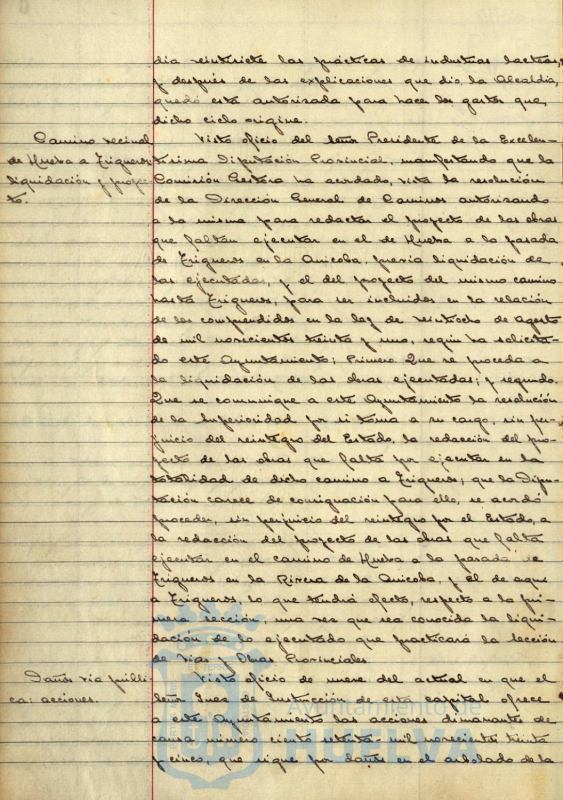 dia veintisiete las prácticas de industrias lacteas,
y después de las explicaciones que dio la Alcaldia,
quedó esta autorizada para hacer los gastos que
dicho ciclo origine.
Camino vecinal
de Huelva a Trigueros
liquidación y proyec-
to.
Visto oficio del señor Presidente de la Excelen-
tisima Diputación Provincial, manifestando que la
Comisión Gestora ha acordado, vista la resolución
de la Dirección General de Caminos autorizando
a la misma para redactar el proyecto de las obras
que faltan ejecutar en el de Huelva a la pasada
de Trigueros en la Anicoba, previa liquidación de
las ejecutadas, y el del proyecto del mismo camino
hasta Trigueros, para ser incluidos en la relación
de los comprendidos en la ley de veintiocho de Agosto
de mil novecientos treinta y uno, según ha solicita-
do este Ayuntamiento; Primero Que se proceda a
la liquidación de las obras ejecutadas; y segundo.
Que se comunique a este Ayuntamiento la resolución
de la Superioridad por si toma a su cargo, sin per-
juicio del reintegro del Estado, la redacción del pro-
yecto de las obras que falta por ejecutar en la
totalidad de dicho camino a Trigueros, que la Dipu-
tación carece de consignación para ello, se acordó
proceder, sin perjuicio del reintegro por el Estado, a
la redacción del proyecto de las obras que falta
ejecutar en el camino de Huelva a la pasada de
Trigueros en la Rivera de la Anicoba, y el de aqui
a Trigueros, lo que tendrá efecto, respecto a la pri-
mera sección, una vez que sea conocida la liqui-
dación de lo ejecutado que practicará la Sección
de Vias y Obras Provinciales.
Daños via públi-
ca: acciones.
Visto oficio de nueve del actual en que el
señor Juez de Instrucción de esta capital ofrece
a este Ayuntamiento las acciones dimanantes de
causa número ciento setenta-mil novecientos treinta
y cinco, que sigue por daños en el arbolado de la
Ayuntamiento de
HUELVA